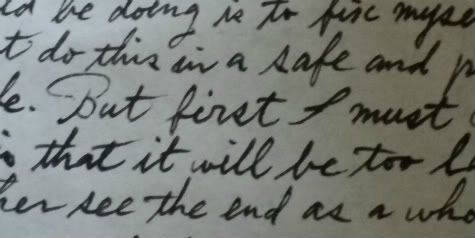 ld be doing is to fix myse
t do this in a safe and p
le. But first I must
is that it will be too l
her see the end as a who